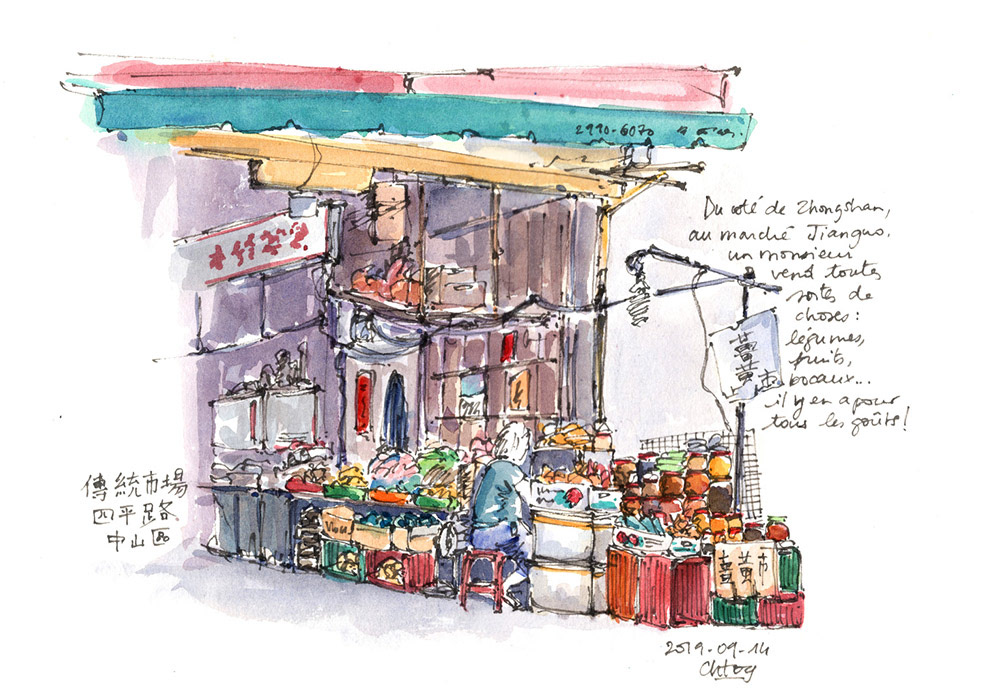 2990-6070
Du côté de Zhongshan,
au marché Jianguo.
un monsieur
vend toutes
sortes de
choses :
légumes,
fruits,
bocaux...
il y en a pour
tous les goûts !
薑黃市
傳統市場
四平路
中山區
薑黃市
2019-09-14